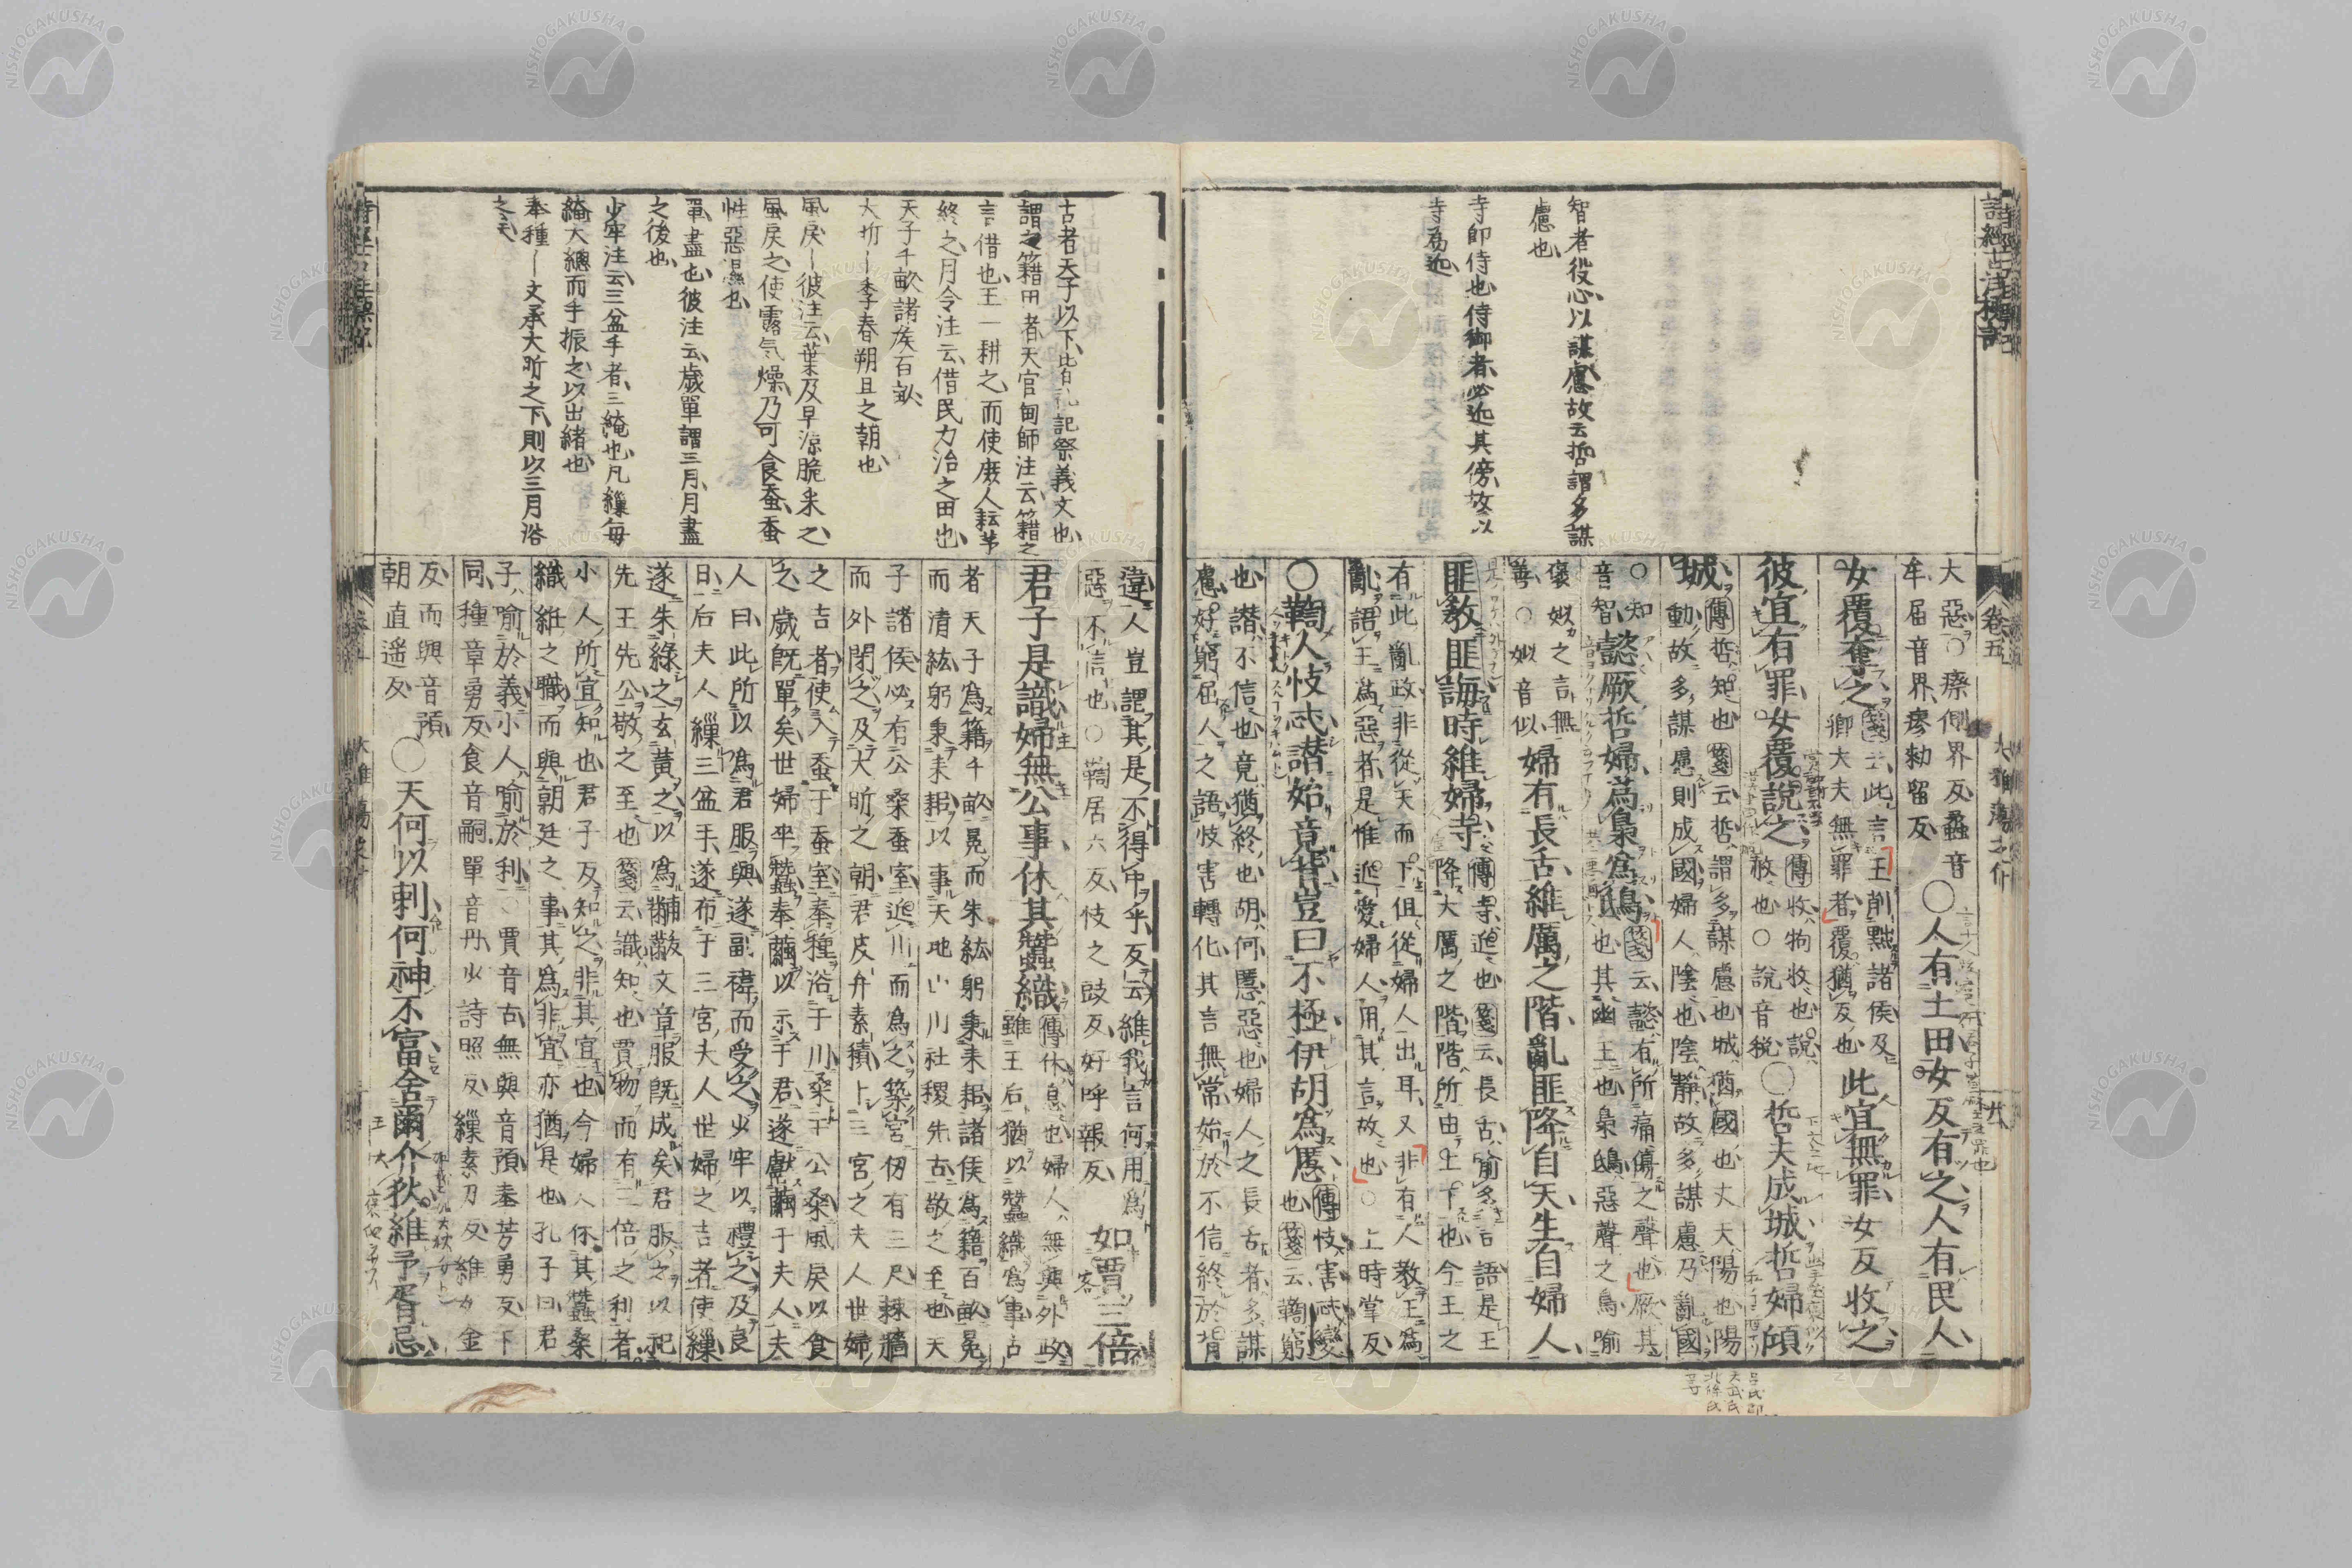 智者役心以謀慮故云哲謂多謀
慮也
寺即侍也侍御者必近其傍故以
寺為近
卷五
大惡○瘵側界反蟊音
牟屆音界瘳勑留反
○人有土田女反有之人有民人
女覆奪之
箋云此言王削黜諸侯及
卿大夫無罪者覆猶反也
此宜無罪女反收之
彼宜有罪女覆說之
傳收拘收也說
赦也○說音稅
○哲夫成城哲婦傾
城
傳哲知也箋云哲謂多謀慮也城猶國也丈夫陽也陽
動故多謀慮則成國婦人陰也陰靜故多謀慮乃亂國
○知
音智
懿厥哲婦為梟為鴟
箋云懿有所痛傷之聲也厥其
也其幽王也梟鴟惡聲之鳥喻
褒姒之言無
善○姒音似
婦有長舌維厲之階亂匪降自天生自婦人
匪敎匪誨時維婦寺
傳寺近也箋云長舌喻多言語是王
降大厲之階階所由上下也今王之
有此亂政非從天而下但從婦人出耳又非有人敎王為
亂語王為惡者是惟近愛婦人用其言故也○上時掌反
○鞫人忮忒譖始竟背豈曰不極伊胡為慝
傳忮害忒變
也箋云鞫窮
也譖不信也竟猶終也胡何慝惡也婦人之長舌者多謀
慮好窮屈人之語忮害轉化其言無常始於不信終於背
古者天子以下皆礼記祭義文也
謂之籍田者天官甸師注云籍之
言借也王一耕之而使庶人耘芓
終之月令注云借民力治之田也
天子千畝諸侯百畝
大昕ー季春朔旦之朝也
風戾ー彼注云葉及早涼脆采之
風戾之使露気燥乃可食蚕蚕
性惡濕也
單盡也彼注云歲單謂三月月盡
之後也
少牢注云三盆手者三淹也凡繅每
淹大總而手振之以出緒也
奉種ー文承大昕之下則以三月浴
之矣
違人豈謂其是不得中乎反云維我言何用為
惡不信也○鞫居六反忮之豉反好呼報反
如賈三倍
君子是識婦無公事休其蠶織
傳休息也婦人無與外政
雖王后猶以蠶織為事古
者天子為籍千畝冕而朱紘躬秉耒耜諸侯為籍百畝冕
而清紘躬秉耒耜以事天地山川社稷先古敬之至也天
子諸侯必有公桑蚕室近川而為之築宮仞有三尺棘牆
而外閉之及大昕之朝君皮弁素積卜三宮之夫人世婦
之吉者使入蚕于蚕室奉種浴于川桑于公桑風戾以食
之歲既單矣世婦卒蠶奉繭以示于君遂獻繭于夫人夫
人曰此所以為君服與遂副褘而受之少牢以禮之及良
日后夫人繅三盆手遂布于三宮夫人世婦之吉者使繅
遂朱綠之玄黃之以為黼黻文章服既成矣君服之以祀
先王先公敬之至也箋云識知也賈物而有三倍之利者
小人所宜知也君子反知之非其宜也今婦人休其蠶桑
織紝之職而與朝廷之事其為非宜亦猶是也孔子曰君
子喻於義小人喻於利○賈音古無與音預奉芳勇反下
同種章勇反食音嗣單音丹少詩照反繅素刀反維女金
反而與音預
朝直遥反
○天何以刺何神不富舍爾介狄維予胥忌